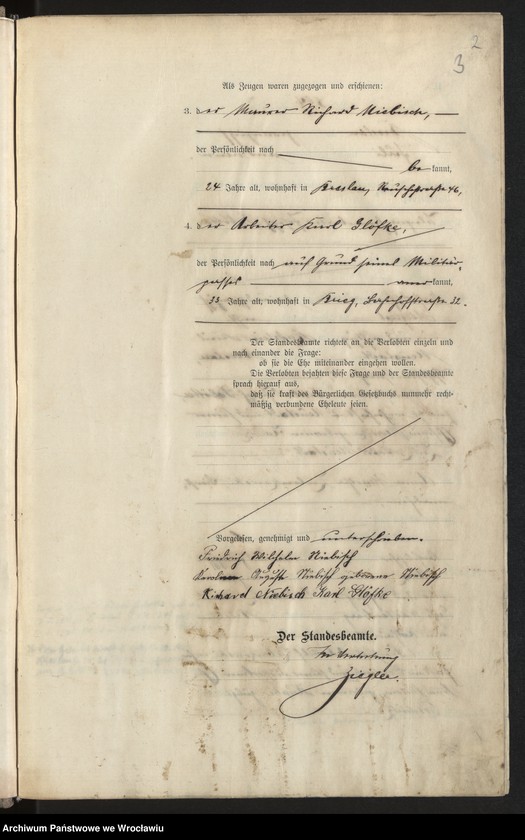 2
3
Als Zeugen waren zugezogen und erschienen:
3. der Maurer Richard Niebisch,
der Persönlichkeit nach
be kannt,
24 Jahre alt, wohnhaft in Breslau, 46,
4. der Arbeiter Karl Glöfke,
der Persönlichkeit nach auf Grund seines Militär-
passes anerkannt,
33 Jahre alt, wohnhaft in Brieg, Bahnhofstraße 32.
Der Standesbeamte richtete an die Verlobten einzeln und
nach einander die Frage:
ob sie die Ehe miteinander eingehen wollen.
Die Verlobten bejahten diese Frage und der Standesbeamte
sprach hierauf aus,
daß sie kraft des Bürgerlichen Gesetzbuchs nunmehr recht-
mäßig verbundene Eheleute seien.
Vorgelesen, genehmigt und unterschrieben.
Friedrich Wilhelm Niebisch
Auguste Niebisch geborene Niebisch
Richard Niebisch Karl Glöfke
Der Standesbeamte.
In Vertretung
Ziegler.
Archiwum Państwowe we Wrocławiu